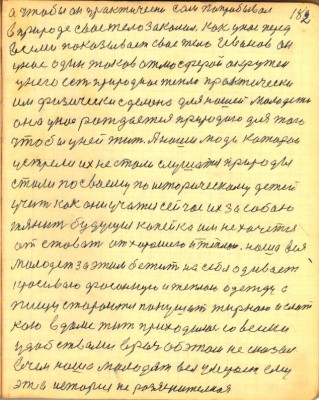 182
а чтобы он практически сам попробывал
в природе свое тело закалил. Как у нас перед
всеми показывает свое тело Иванов он
у нас один таков атмосферой окружен
у него есть природное тепло практически
им физически сделано для нашей молодежи
она у нас рождается природою для того
чтобы у ней жить. А наши люди которые
их не стали слушать природы
стали по своему по историческому детей
учить как они учат и сейчас их за собою
тянит будущая копейка им не хочется
отставать от хорошего и тёплого. наша вся
молодежь за этим бежит на себя одевает
красивую фасонную и теплую одежду а
пищу стараются покушать жирную и слад
кую в доме жить приходилось со всеми
удобствами враз об этом не сказал
в чем наша молодежь вся умирает ему
эта история не